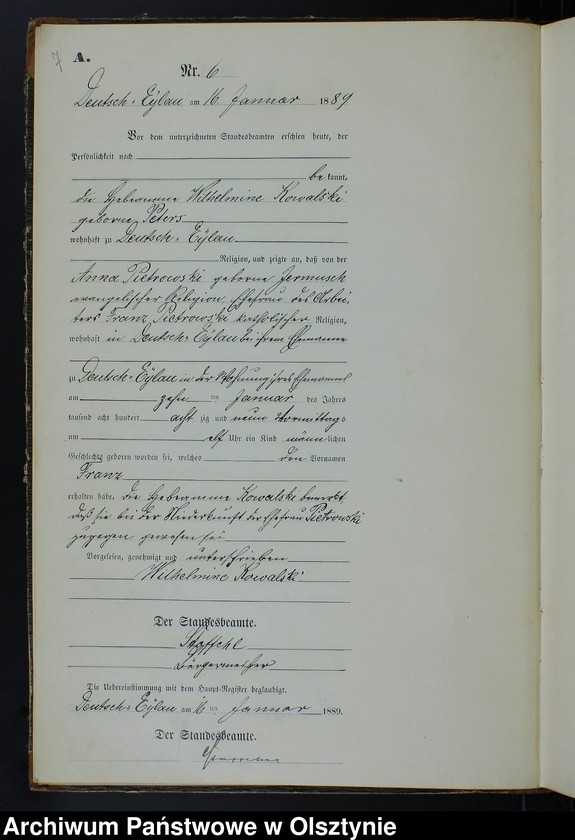 7
A.
Nr. 6
Deutsch-Eylau am 16 Januar 1889
Vor dem unterzeichneten Standesbeamten erschien heute, der
Persönlichkeit nach
be kannt,
die Hebeamme Wilhelmine Kowalski
geborne Peters
wohnhaft zu Deutsch-Eylau
Religion, und zeigte an, daß von der
Anna Pietrowski geborne Jermusch
evangelischer Religion, Ehefrau des Arbei-
ters Franz Pietrowski katholischer Religion,
wohnhaft in Deutsch-Eylau bei ihrem Ehemanne
zu Deutsch-Eylau in der Wohnung ihres Ehemannes
am zehn ten Januar des Jahres
tausend acht hundert acht zig und neun Vormittags
um elf Uhr ein Kind männ lichen
Geschlechts geboren worden sei, welches den Vornamen
Franz
erhalten habe. Die Hebeamme Kowalski bemerkt
daß sie bei der Niederkunft der Ehefrau Pietrowski
zugegen gewesen sei
Vorgelesen, genehmigt und unterschrieben
Wilhelmine Kowalski
Der Standesbeamte.
Bürgermeister
Die Uebereinstimmung mit dem Haupt-Register beglaubigt.
Deutsch-Eylau am 16 ten Januar 1889.
Der Standesbeamte.
Archiwum Państwowe w Olsztynie